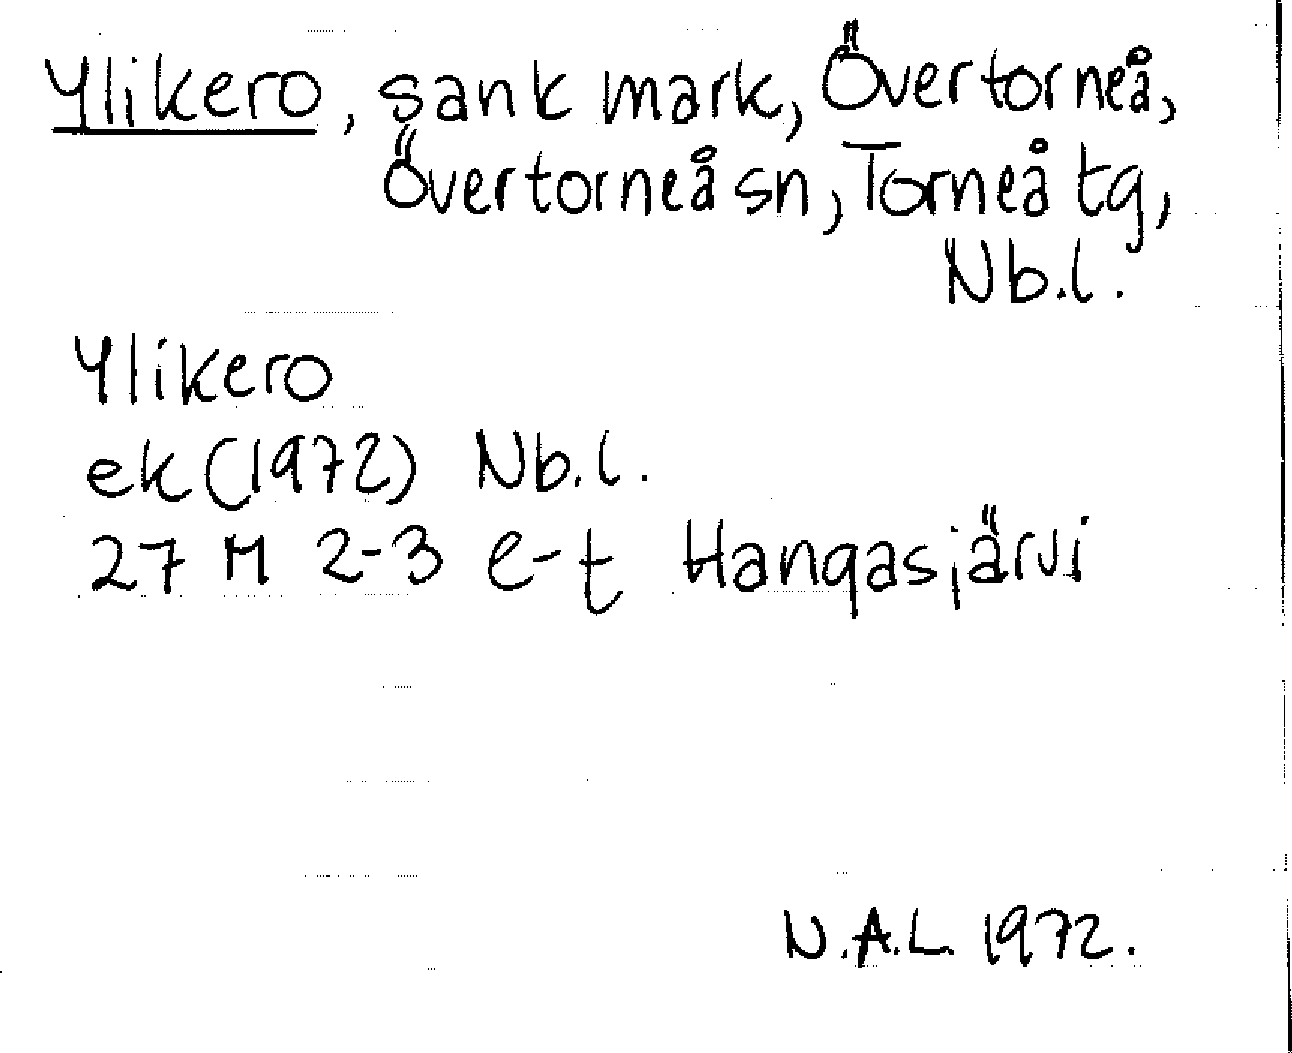 Ylikero, sank mark, Övertorneå,
Övertorneå sn, Torneå tg,
Nb.l.
Ylikero
ek (1972) Nb.l.
27 M 2-3 e-t Hangasjärvi
N.A.L. 1972.